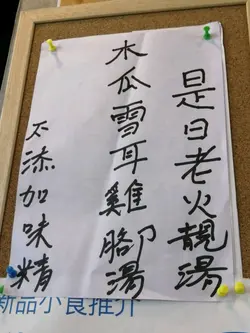 是日老火靚湯
木瓜雪耳雞腳湯
不添加味精
新品小食推介